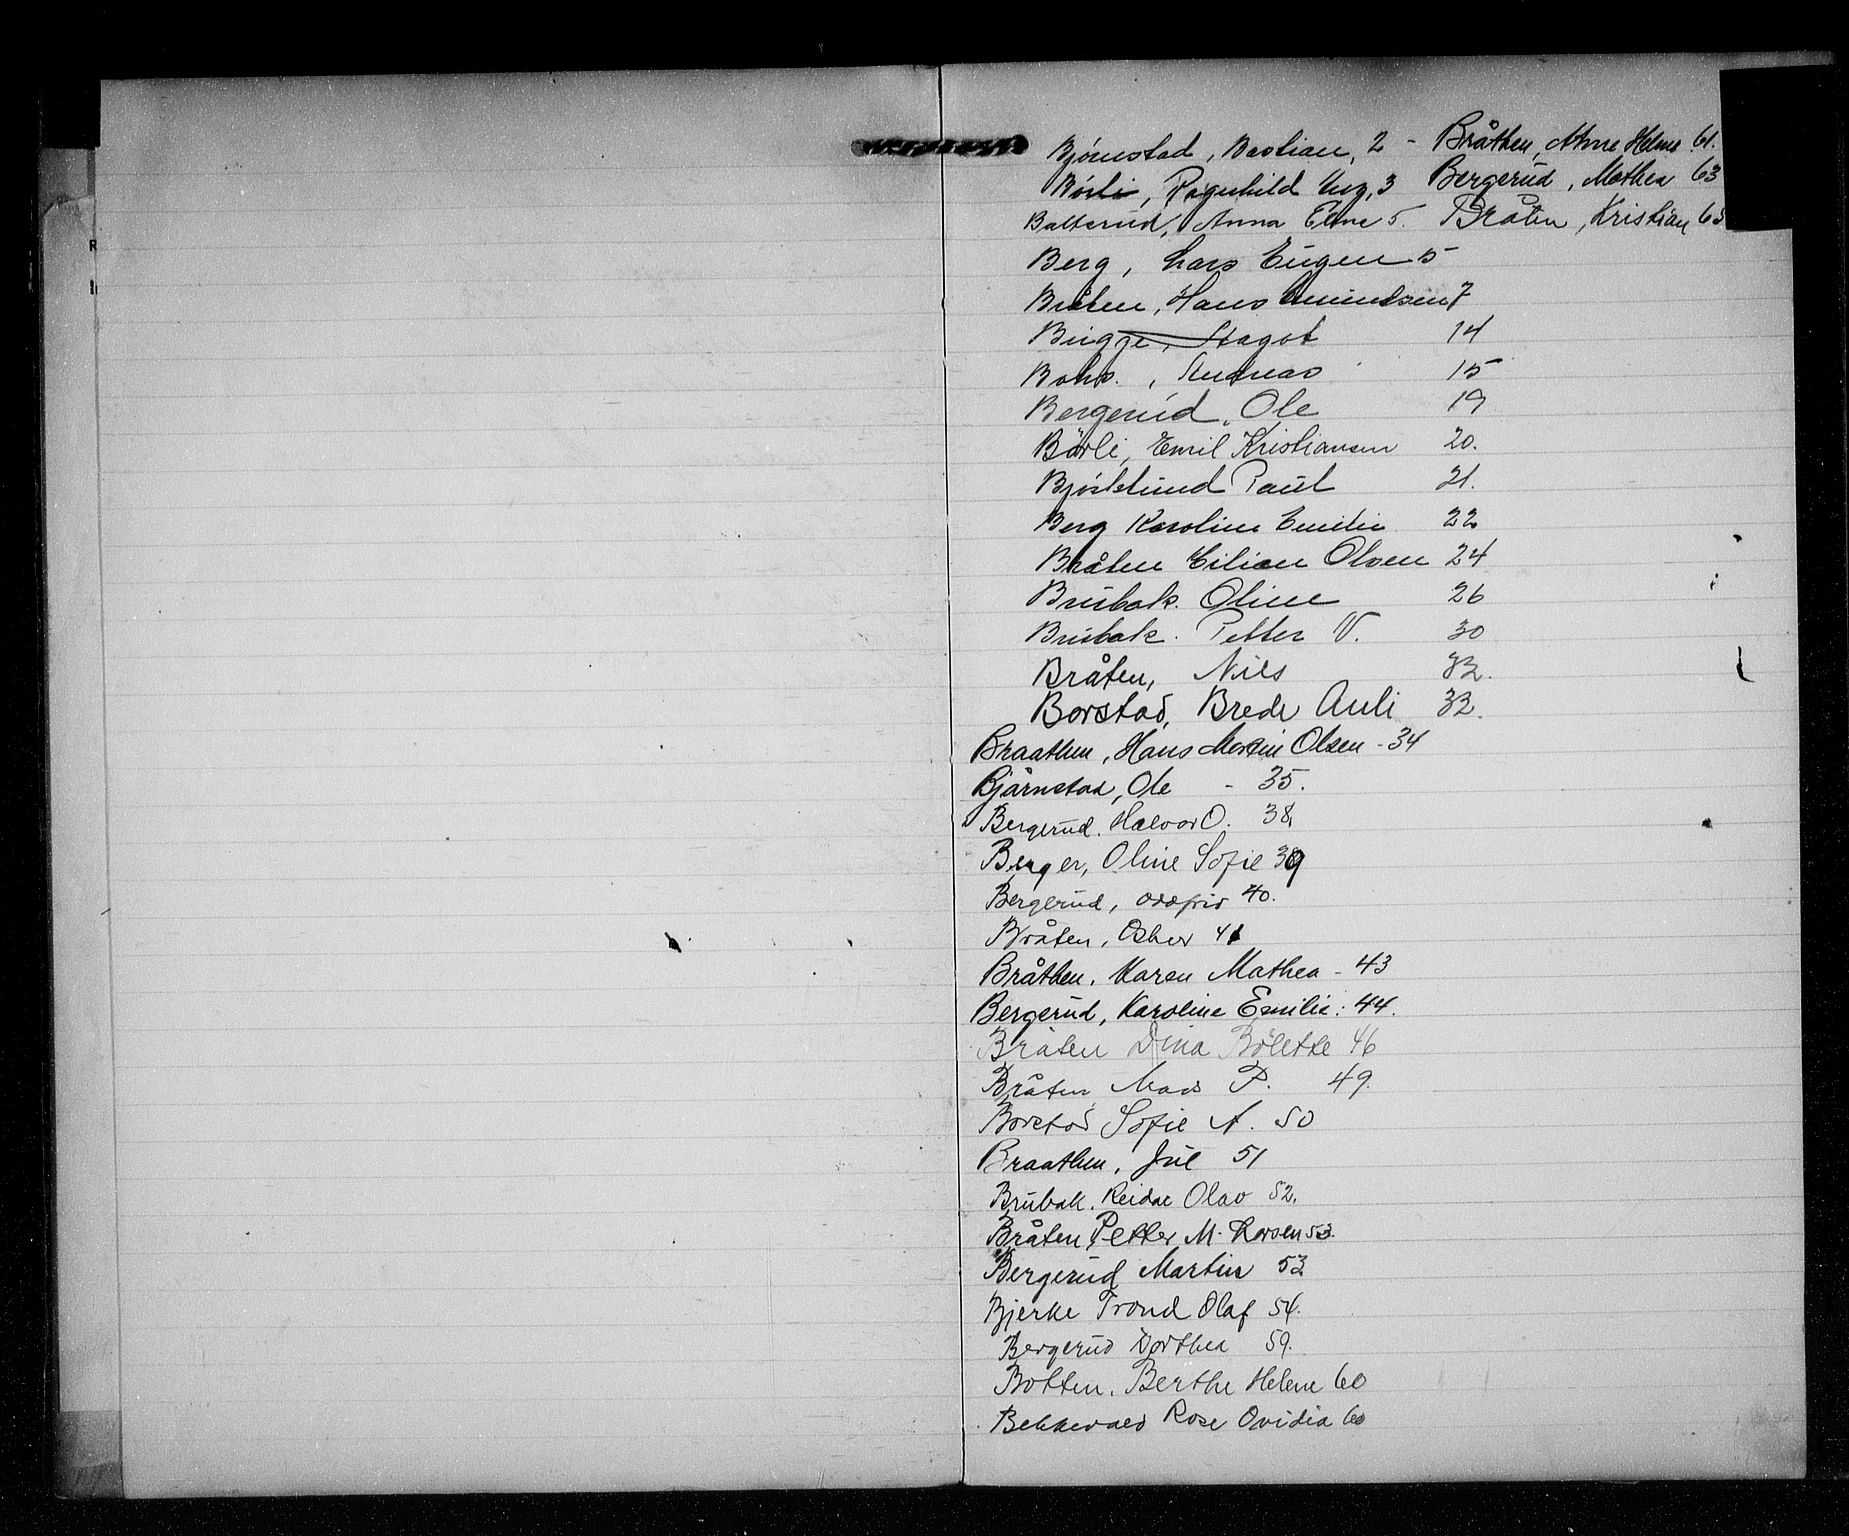 Bjørnstad, Bastian, 2 - Bråthen, Anne Helene 61.
Børli, Ragnhild 3 Bergerud, Mathea 63
Balterud, Anna Eline 5. Bråten, Kristian 63
Berg, Lars Eugen 5
Bråten, Hans Amundsen 7
Bugge, Dagot 14
Bohs., Andreas 15
Bergerud, Ole 19
Børli, Emil Kristiansen 20.
Bjørklund Paul 21.
Berg Karoline Emilie 22
Bråten Eilian Olsen 24
Brubak. Oline 26
Brubak. Petter V. 30
Bråten, Nils 32.
Borstad, Brede Auli 32.
Braathen, Hans Martin Olsen - 34
Bjørnstad, Ole - 35.
Bergerud, Halvor O. 38.
Berger, Oline Sofie 39
Bergerud, Oddfrid 40.
Bråten, Oskar 41
Bråthen, Karen Mathea - 43
Bergerud, Karoline Emilie: 44.
Bråten Dina Bolette 46
Bråten Mads P. 49.
Borstad Sofie A. 50
Braathen, Jul 51
Brubak. Reidar Olav 52.
Bråten Petter M. Larsen 53.
Bergerud Martin 53
Bjerke Trond Olaf 54.
Bergerud Dorthea 59.
Botten. Berthe Helene 60
Bekkevold Rose Ovidia 60